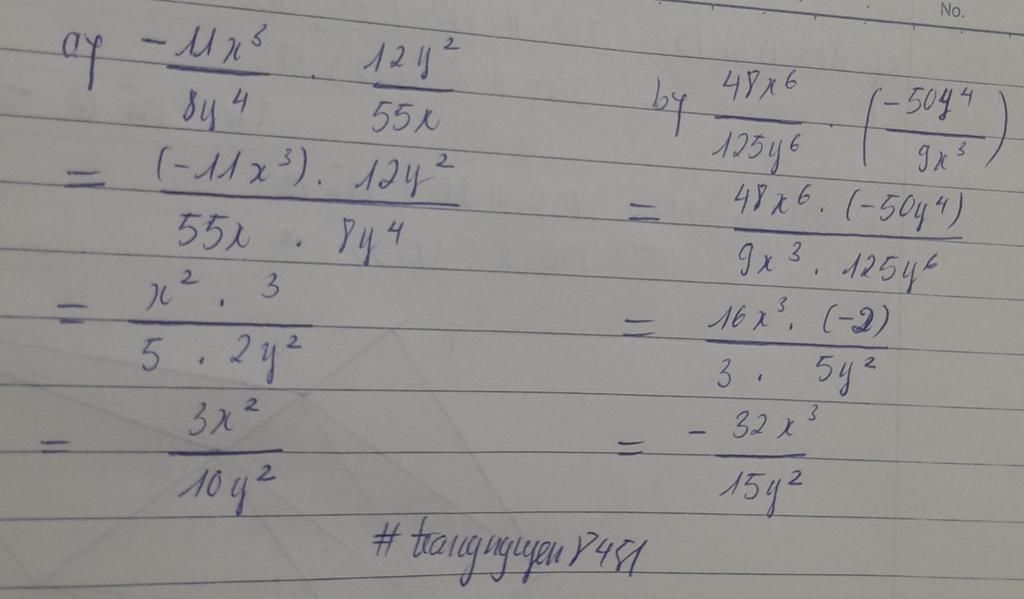 No.
a) -11x³/8y⁴ . 12y²/55x
= (-11x³) . 12y² / 55x . 8y⁴
= x² . 3 / 5 . 2y²
= 3x²/10y²
b) 48x⁶/125y⁶ . (-50y⁴/9x³)
= 48x⁶ . (-50y⁴) / 9x³ . 125y⁶
= 16x³ . (-2) / 3 . 5y²
= - 32x³/15y²
# trangnguyen8451